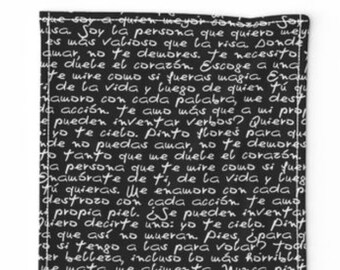 que soy a quien mejor conozco. Soy
musa. Soy la persona que quiero mejor
es más valioso que la risa. Donde
amar, no te demores. te necesito
me duele el corazón. Escoge a una
te mire como si fueras magia. Enamórate
de la vida y luego de quien tú
enamoro con cada palabra, me dest
acción. te amo más que a mi prop
pueden inventar verbos? Quiero
yo te cielo. Pinto flores para
de no puedas amar, no te demores
tanto que me duele el corazón
persona que te mire como si fueras
Enamórate de ti, de la vida y luego
tú quieras. Me enamoro con cada
destrozo con cada acción. te amo
propia piel. ¿Se pueden inventar
Quiero decirte uno: yo te cielo. Pinto
para que así no mueran. Pies, ¿para
si tengo a las para volar? todo
tener belleza, incluso lo más horrible